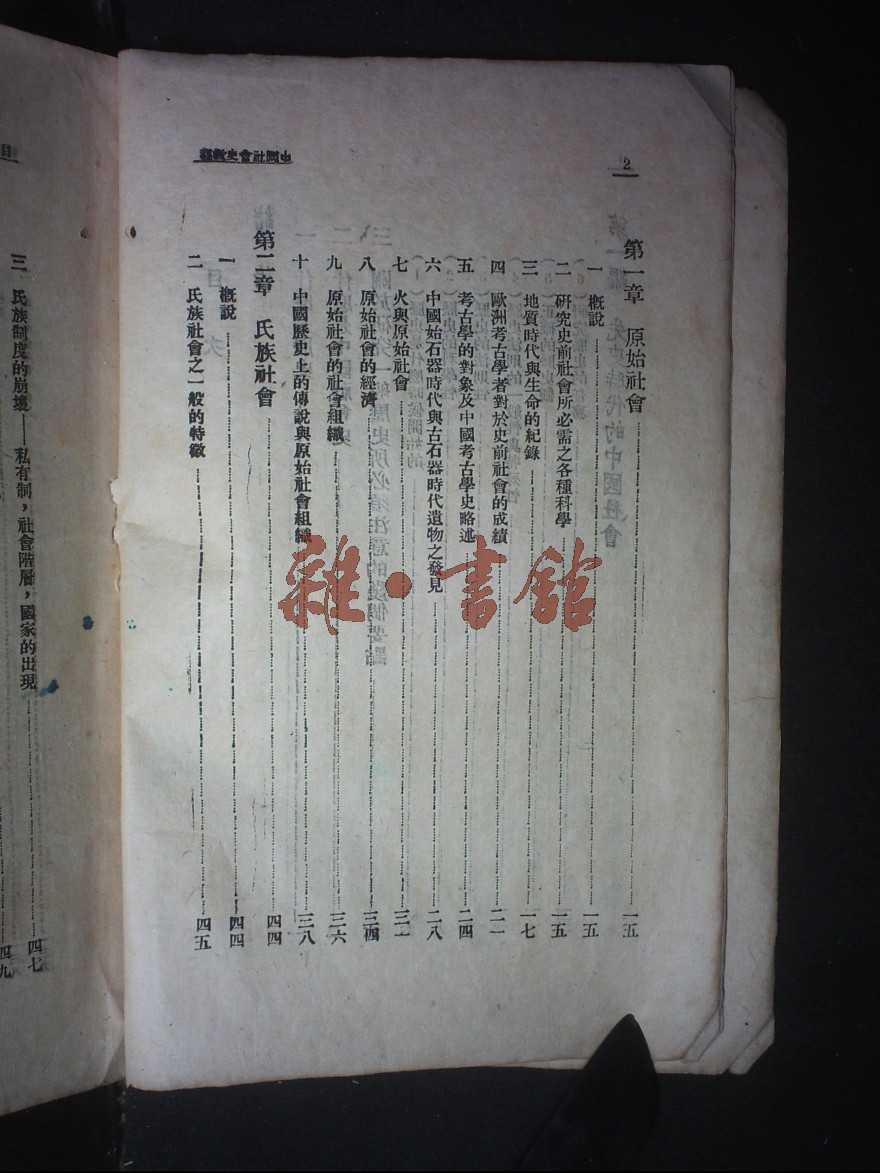 2
中國社會史教程
第一章 原始社會……一五
一 概說……一五
二 研究史前社會所必需之各種科學……一五
三 地質時代與生命的紀錄……一七
四 歐洲考古學者對於史前社會的成績……二一
五 考古學的對象及中國考古學史略述……二四
六 中國始石器時代與古石器時代遺物之發見……二八
七 火與原始社會……三一
八 原始社會的經濟……三四
九 原始社會的社會組織……三六
十 中國歷史上的傳說與原始社會組織……三八
第二章 氏族社會……四四
一 概說……四四
二 氏族社會之一般的特徵……四五
三 氏族制度的崩壞——私有制，社會階層，國家的出現……四七
四九
目
雜·書館